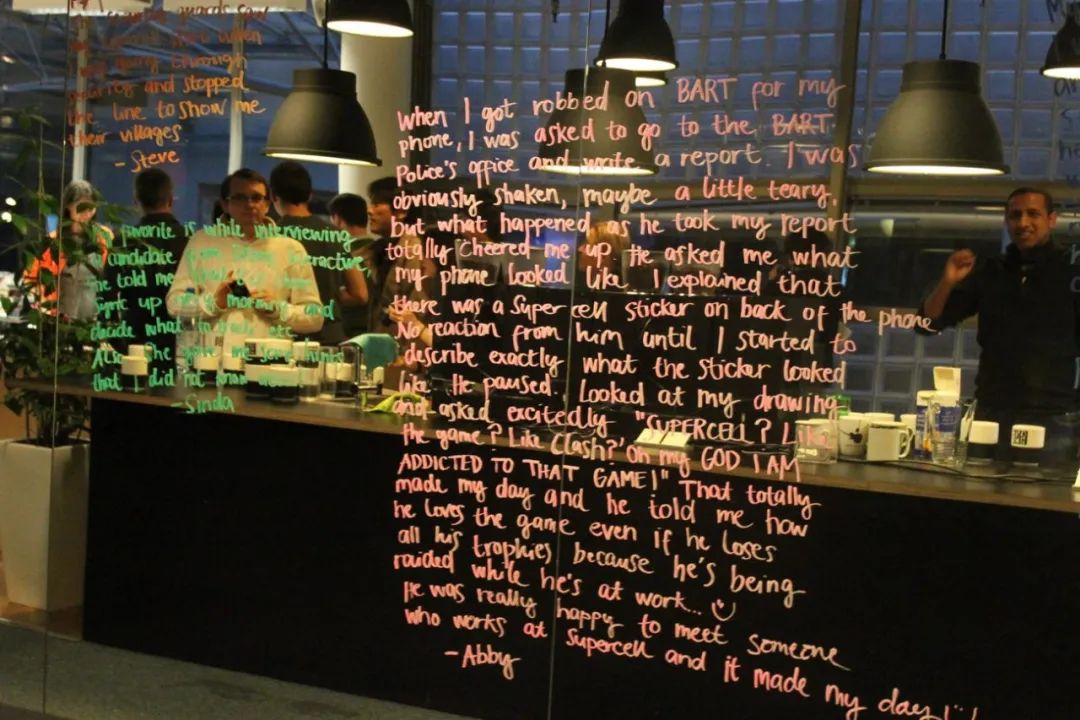 guards saw
when
going through
and stopped
the line to show me
their villages
- Steve
favorite is while interviewing
a candidate from
he told me
up every morning and
decide what to
Also, he gave me some
that I did not know
- Sinda
When I got robbed on BART for my
phone, I was asked to go to the BART
Police's office and write a report. I was
obviously shaken, maybe a little teary,
but what happened as he took my report
totally cheered me up. He asked me what
my phone looked like. I explained that
there was a Supercell sticker on back of the phone
No reaction from him until I started to
describe exactly what the sticker looked
like. He paused. Looked at my drawing
and asked excitedly "SUPERCELL? Like
the game? Like Clash? Oh my GOD I AM
ADDICTED TO THAT GAME!" That totally
made my day and he told me how
he loves the game even if he loses
all his trophies because he's being
raided while he's at work...
He was really happy to meet someone
who works at Supercell and it made my day!
- Abby